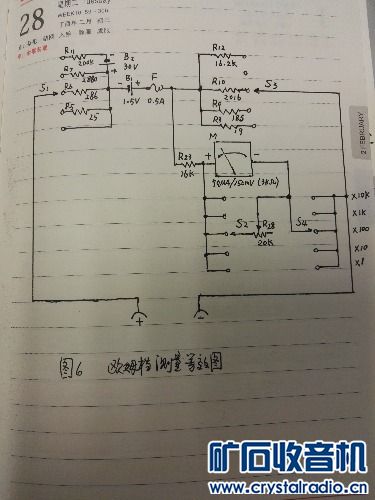 28
星期二
WEEK10
2 FEBRUARY
R11
200K
R7
2880
R6
286
R5
25
S1
B2
30V
B1
1.5V
F
0.5A
R12
16.2K
R10
2016
R9
185
R8
19
S3
R23
16K
M
+
−
50μA/150mV (3KΩ)
S2
R28
20K
S4
X10K
X1K
X100
X10
X1
+
−
图6 欧姆档测量等效图
矿石收音机
www.crystalradio.cn